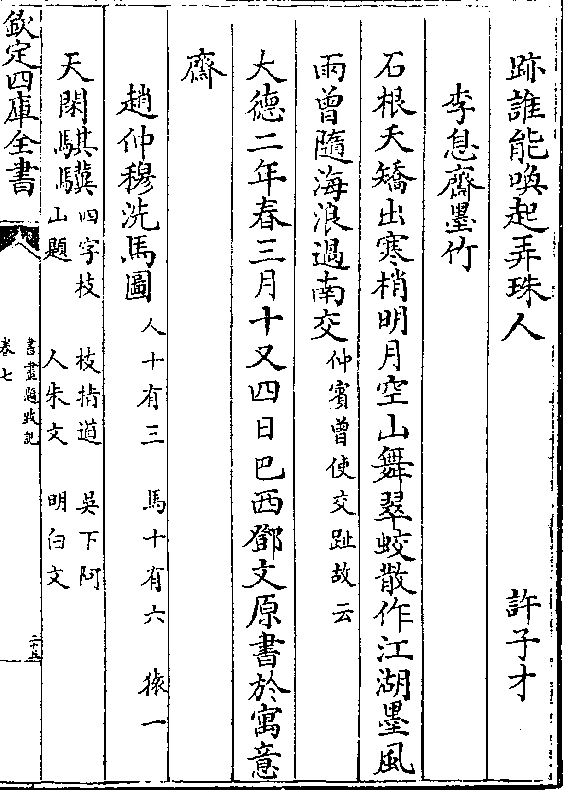 跡誰能喚起弄珠人　許子才
李息齋墨竹
石根夭矯出寒梢明月空山舞翠蛟散作江湖墨風
雨曾隨海浪過南交仲賓曾使交趾故云
大德二年春三月十又四日巴西鄧文原書於寓意
齋
趙仲穆洗馬圖人十有三　馬十有六　猿一
天閑騏驥四字枝山題　枝指道人朱文　吳下阿明白文
欽定四庫全書
書畫題跋記
卷七
二十五